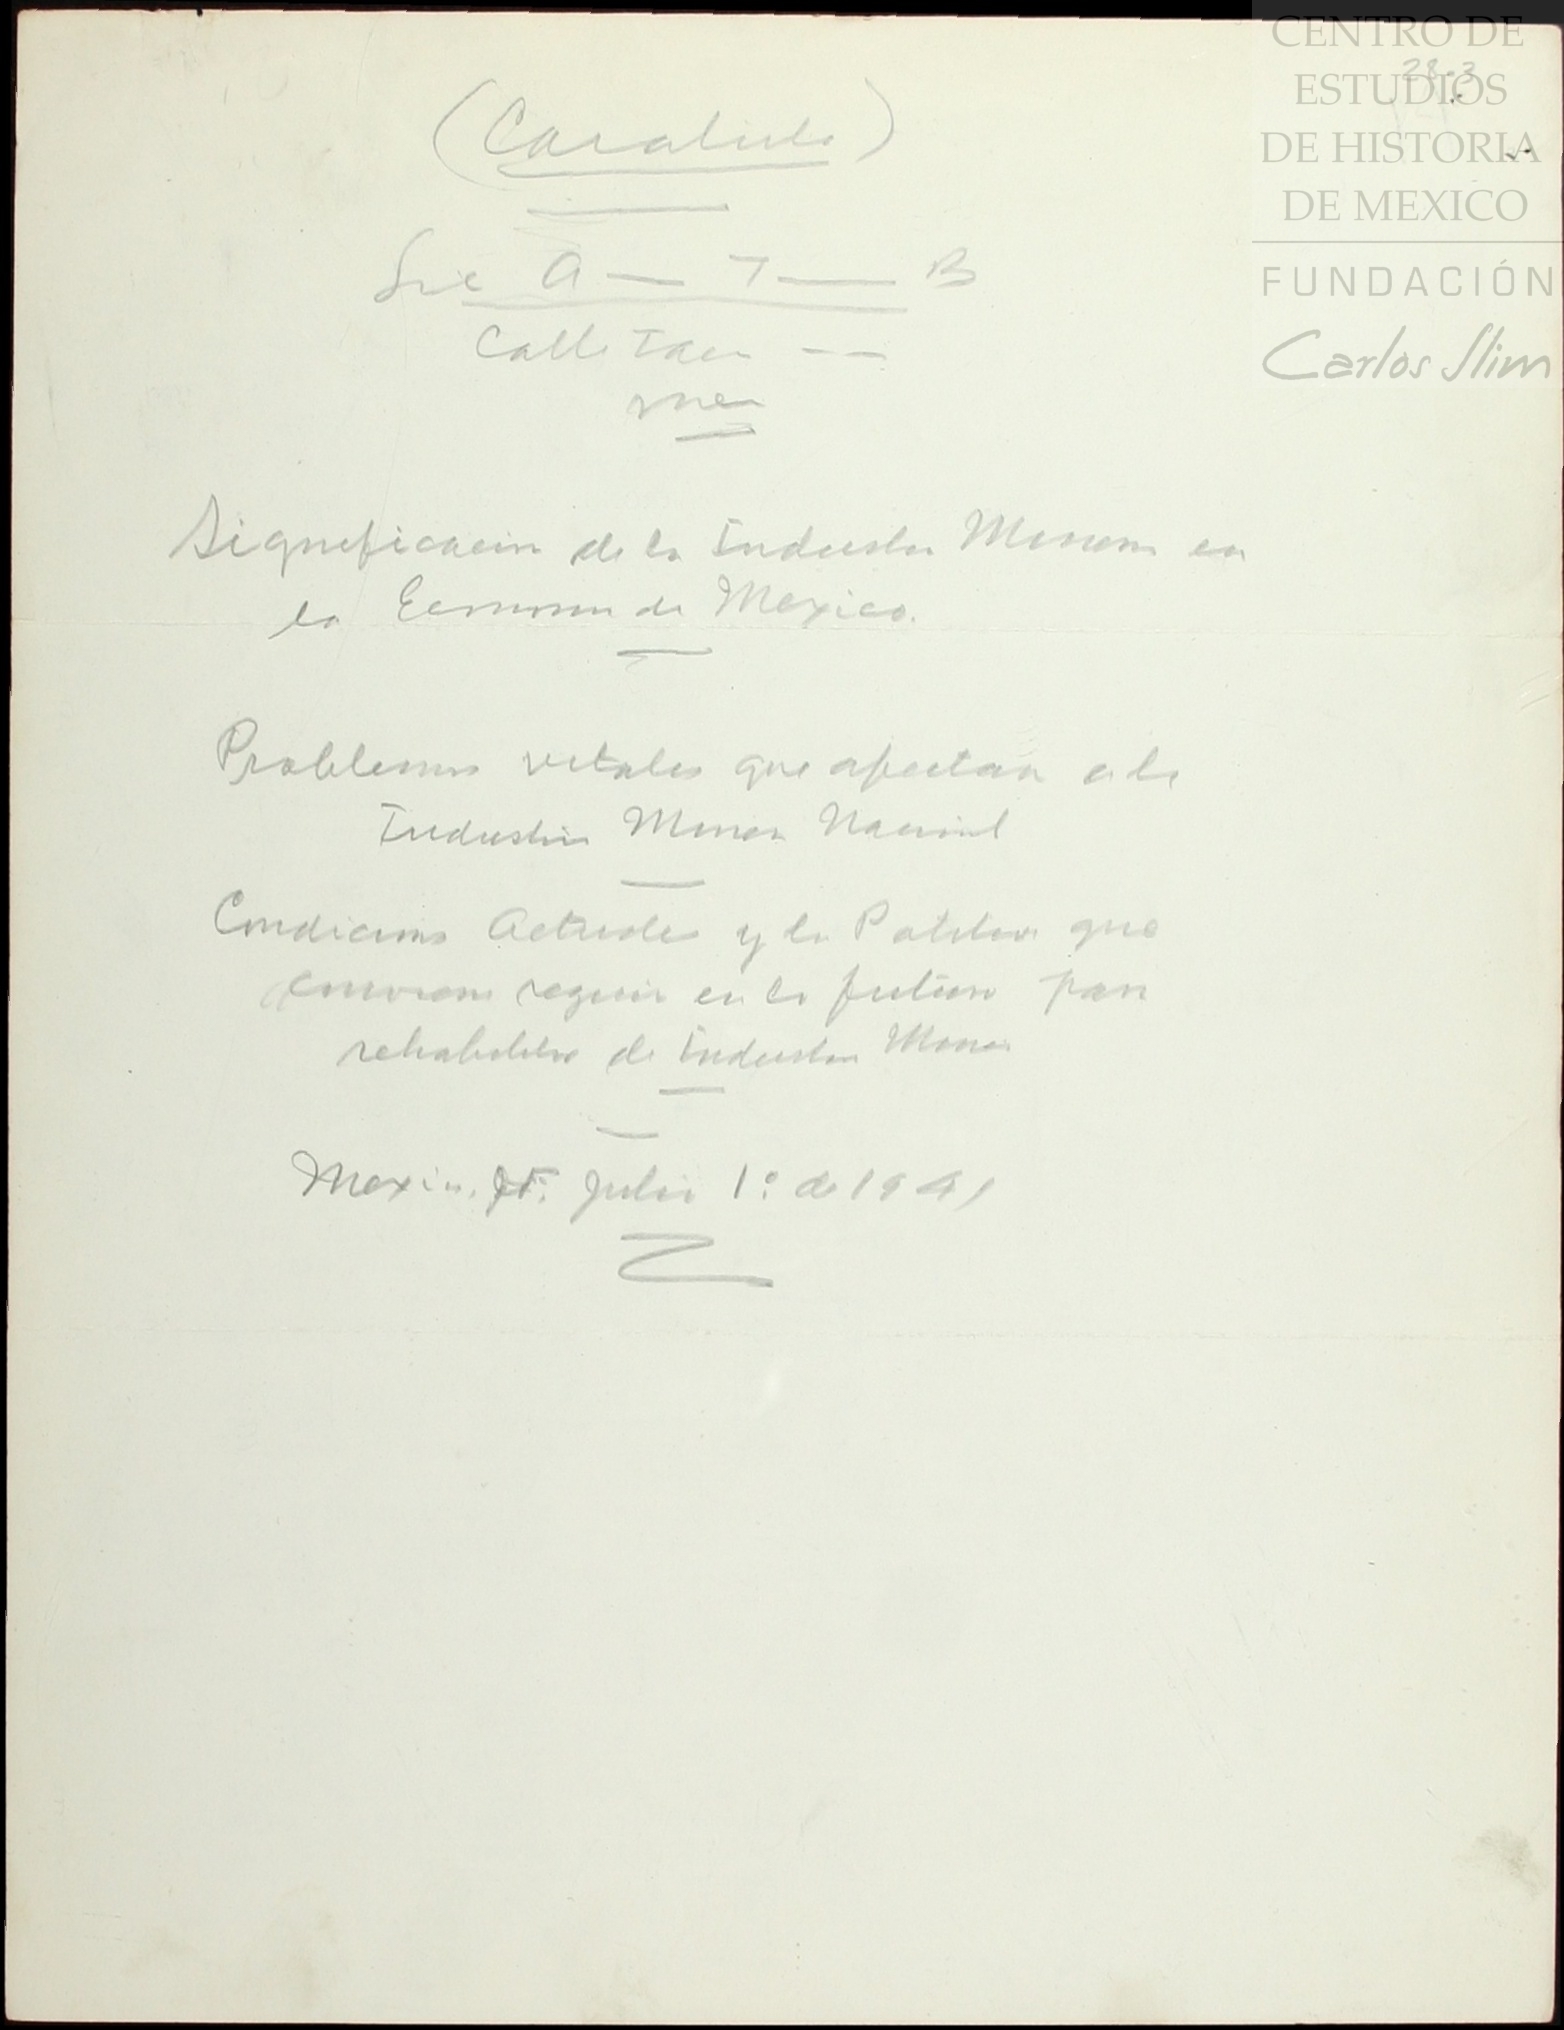 CENTRO DE
ESTUDIOS
DE HISTORIA
DE MEXICO
FUNDACIÓN
Carlos Slim
28-3
(Caratula)
A — T — B
Calle
Significacion de la Industria Minera en
la Economia de Mexico.
Problemas vitales que afectan a la
Industria Minera Nacional
Condiciones Actuales y la Politica que
seguir en lo futuro para
rehabilitar de Industria Minera
Mexico, D.F. Julio 1º de 1941